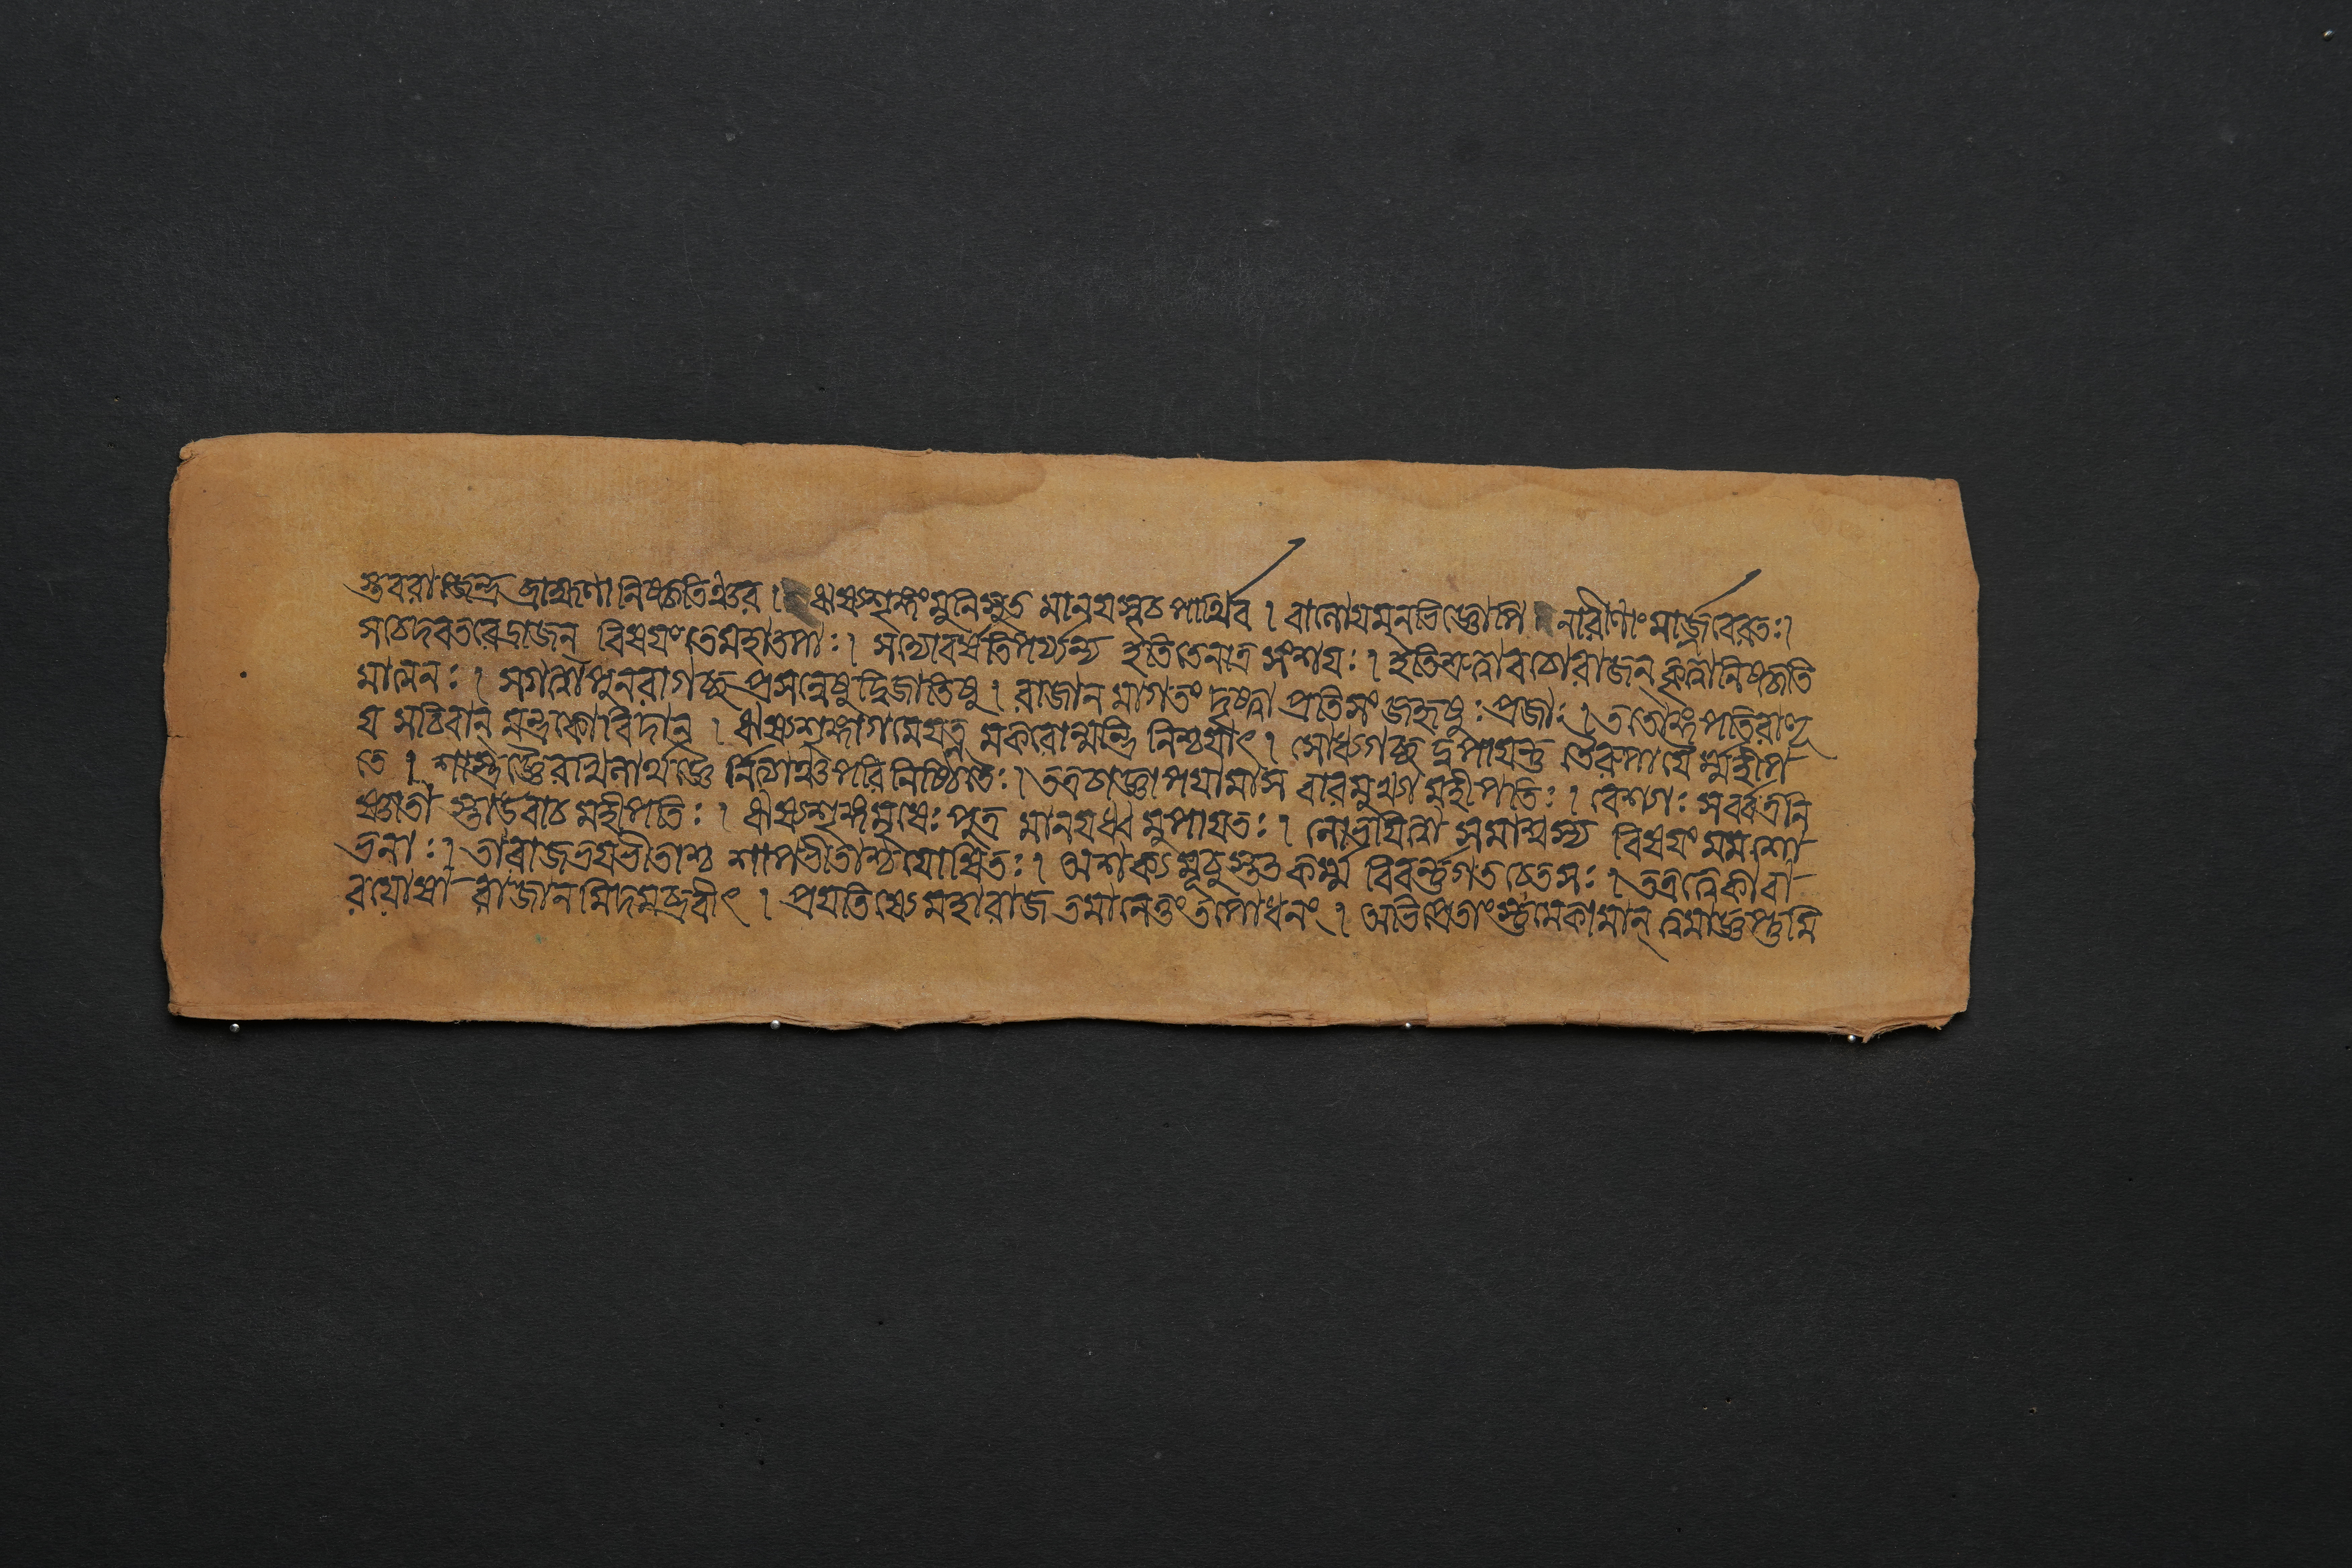 স্তবরাজেন্দ্র ব্রাহ্মণা নিষ্কৃতিঞ্চর । ঋষ্যশৃঙ্গং মুনিসুত মানয়স্বচ পার্থিব । বানেয়মনভিজ্ঞোপি নারীণাং মার্জ্জবেরতঃ।
সচেদবতরেদ্রাজন্ বিষয়ং তেমহাতপাঃ। সদ্যোবর্ষতিপর্য্যন্য ইতিতেনাত্র সংশয়ঃ। ইতিশ্রুত্বাবচোরাজন্ কৃত্বানিষ্কৃতি
মাত্মনঃ। সগত্বাপুনরাগচ্ছৎপ্রসন্নেষুদ্বিজাতিষু। রাজান মাগতং দৃষ্ট্বা প্রতিসং জহৃষুঃ প্রজাঃ। ততোঙ্গপতিরাহূ
য় সচিবান্ মন্ত্রকোবিদান্ । ঋষ্যশৃঙ্গাগমেযত্ন মকরোন্মন্ত্রি নিশ্চয়াৎ। সোধ্যগচ্ছ দুপায়ন্তু তৈরুপায়ৈ র্ম্মহীপ-
তে । শাস্ত্রজ্ঞৈরাত্মনার্থজ্ঞৈ র্নিত্যঞ্চপরিনিষ্ঠিতৈঃ। ততশ্চাজ্ঞাপয়ামাস বারমুখ্যা মহীপতিঃ। বেশ্যাঃ সর্ব্বত্রনি
ষ্ণাতা স্তাউবাচ মহীপতিঃ। ঋষ্যশৃঙ্গমৃষেঃ পুত্র মানয়ধ্ব মুপায়তঃ। লোভয়িত্বা সমাশ্বস্য বিষয়ং মম শো-
ভনাঃ। তারাজভয়ভীতাশ্চ শাপভীতাশ্চযোষিতঃ। অশক্য মূচুস্তত কর্ম্ম বিবর্ণাগতচেতসঃ। তত্রত্বেকাবা-
রযোষা রাজানমিদমব্রবীৎ । প্রযতিষ্যে মহারাজ তমানেতুং তপোধনং। অভিপ্রেতাংস্তুমেকামান্ ত্বমাজ্ঞপ্তুমি